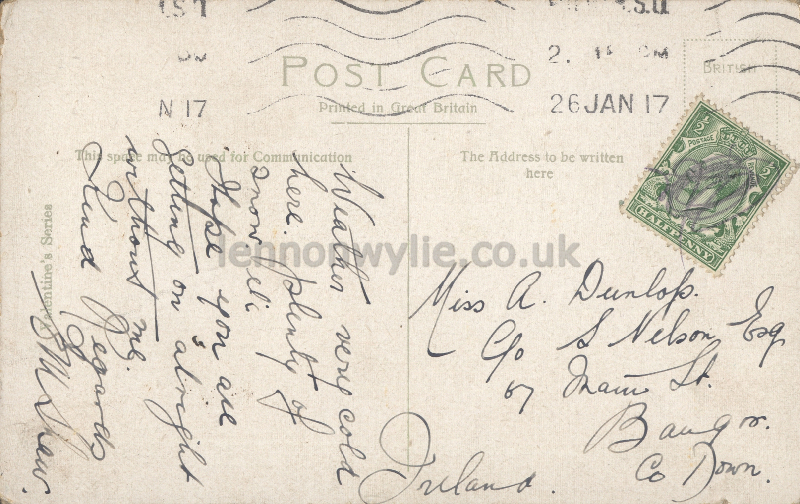 POST CARD
Printed in Great Britain
BRITISH
26 JAN 17
N 17
This space may be used for Communication
The Address to be written
here
Valentine's Series
½
½
POSTAGE
HALFPENNY
Weather very cold
here. plenty of
snow.
Hope you are
getting on alright
without me.
Kind Regards
M Shaw.
Miss A. Dunlop.
C/o S Nelson Esq
67 Main St.
Bangor.
Co Down.
Ireland.
lennonwylie.co.uk